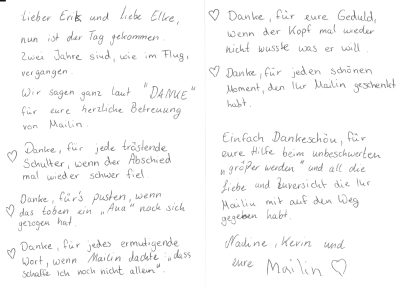 Lieber Erik und Liebe Elke,
nun ist der Tag gekommen.
Zwei Jahre sind, wie im Flug,
vergangen.
Wir sagen ganz laut "DANKE"
für eure herzliche Betreuung
von Mailin.
♡ Danke, für jede tröstende
Schulter, wenn der Abschied
mal wieder schwer fiel.
♡ Danke, für's pusten, wenn
das toben ein „Aua" nach sich
gezogen hat.
♡ Danke, für jedes ermutigende
Wort, wenn Mailin dachte: „dass
schaffe ich noch nicht allein".
♡ Danke, für eure Geduld,
wenn der Kopf mal wieder
nicht wusste was er will.
♡ Danke, für jeden schönen
Moment, den Ihr Mailin geschenkt
habt.
Einfach Dankeschön, für
eure Hilfe beim unbeschwerten
„größer werden" und all die
Liebe und Zuversicht die Ihr
Mailin mit auf den Weg
gegeben habt.
Nadine, Kevin und
eure Mailin ♡